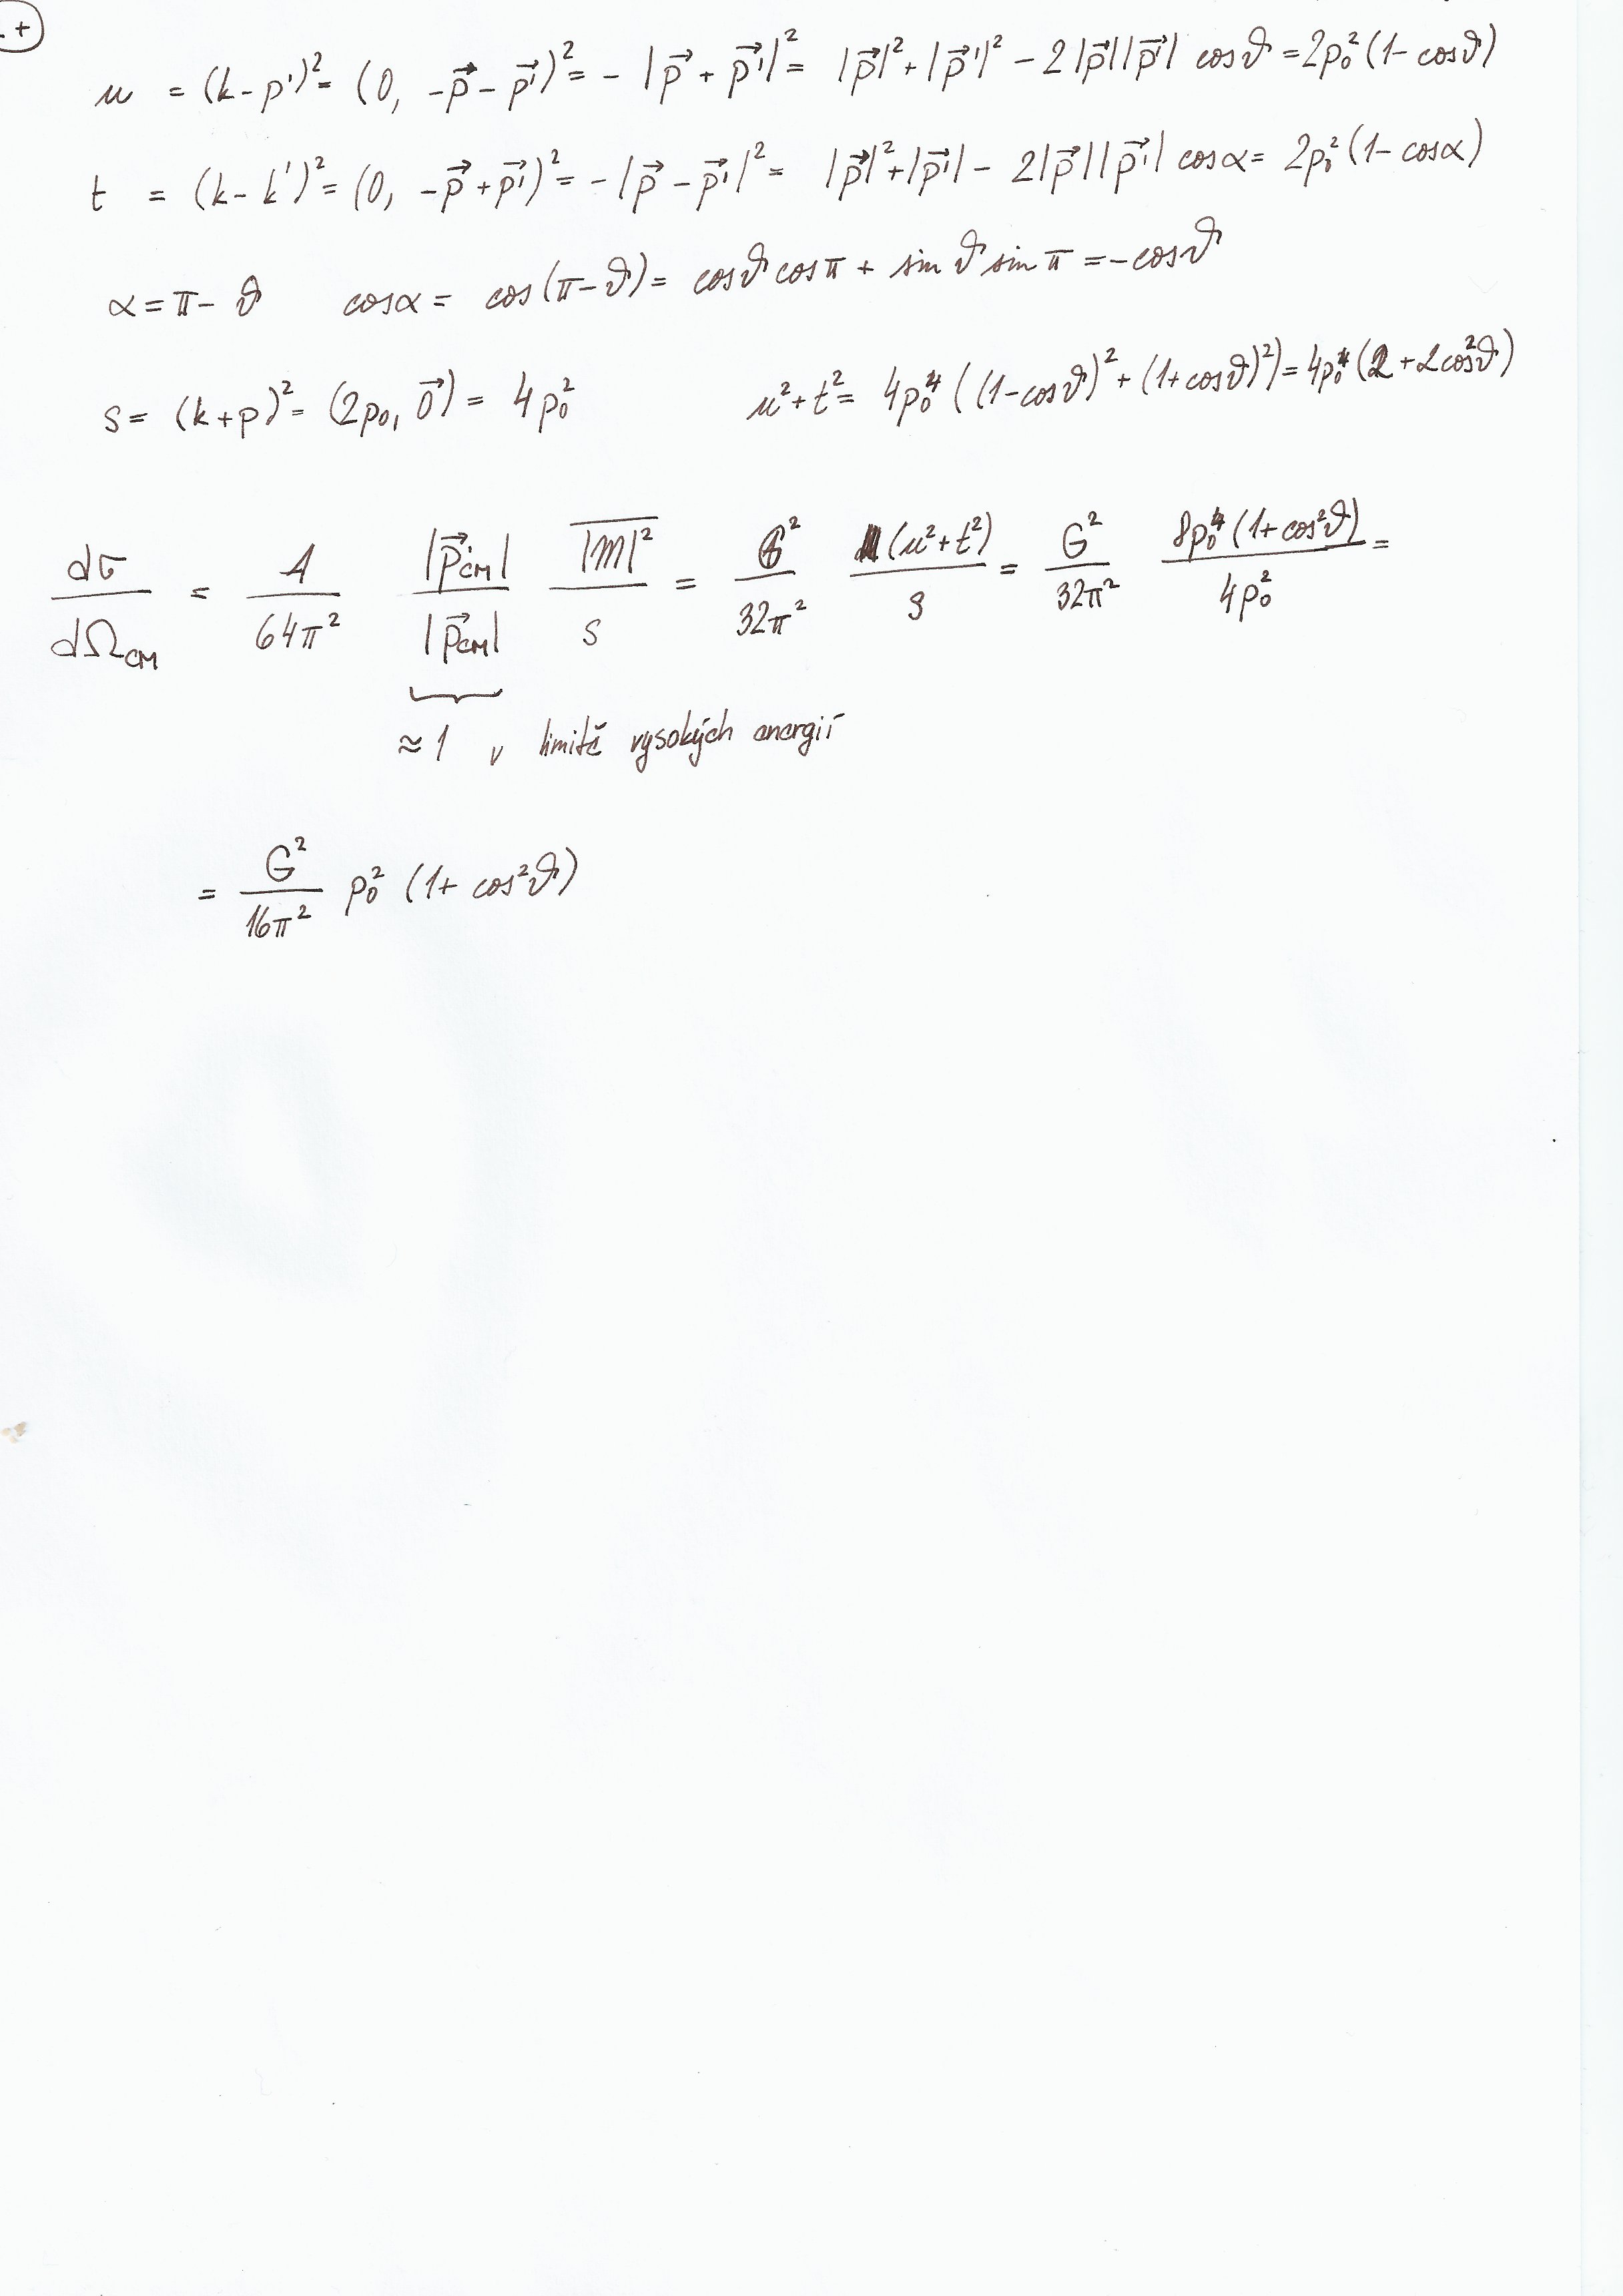 . +
u = (k - p')² = (0, -p⃗ - p⃗')² = - |p⃗ + p⃗'|² = |p⃗|² + |p⃗'|² - 2|p⃗||p⃗'| cosϑ = 2p₀²(1 - cosϑ)
t = (k - k')² = (0, -p⃗ + p⃗')² = - |p⃗ - p⃗'|² = |p⃗|² + |p⃗'| - 2|p⃗||p⃗'| cosα = 2p₀²(1 - cosα)
α = π - ϑ cosα = cos(π - ϑ) = cosϑ cosπ + sinϑ sinπ = -cosϑ
s = (k + p)² = (2p₀, 0⃗) = 4p₀² u² + t² = 4p₀⁴((1 - cosϑ)² + (1 + cosϑ)²) = 4p₀⁴(2 + 2cos²ϑ)
dσ/dΩ_CM = 1/64π² |p⃗'_CM|/|p⃗_CM| \overline{|M|²}/s = G²/32π² (u² + t²)/s = G²/32π² 8p₀⁴(1 + cos²ϑ)/4p₀² =
≈ 1 v limitě vysokých energií
= G²/16π² p₀² (1 + cos²ϑ)